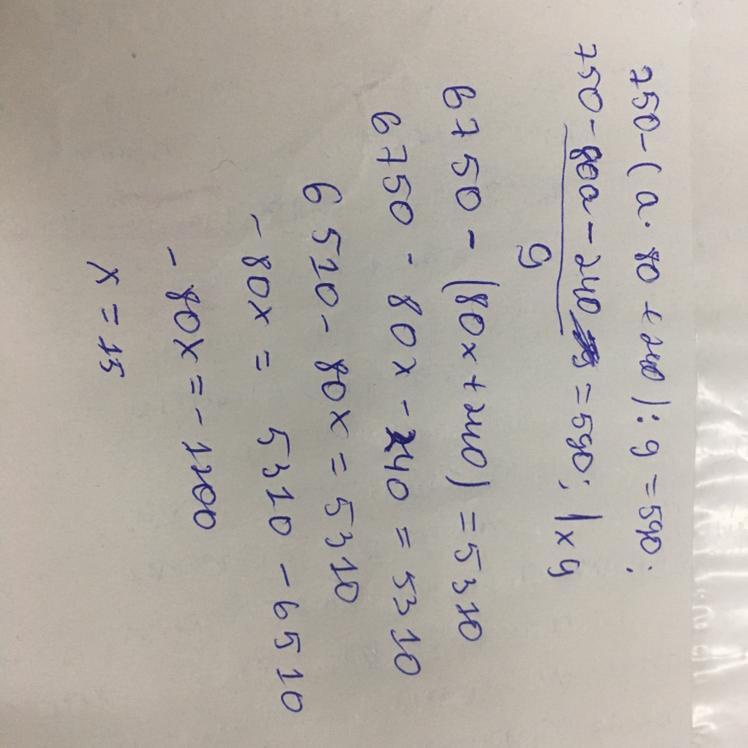 750-(a·80+240):9=590;
750-80a-240=590; |x9
9
6750-(80x+240)=5310
6750-80x-240=5310
6510-80x=5310
-80x=5310-6510
-80x=-1200
x=15